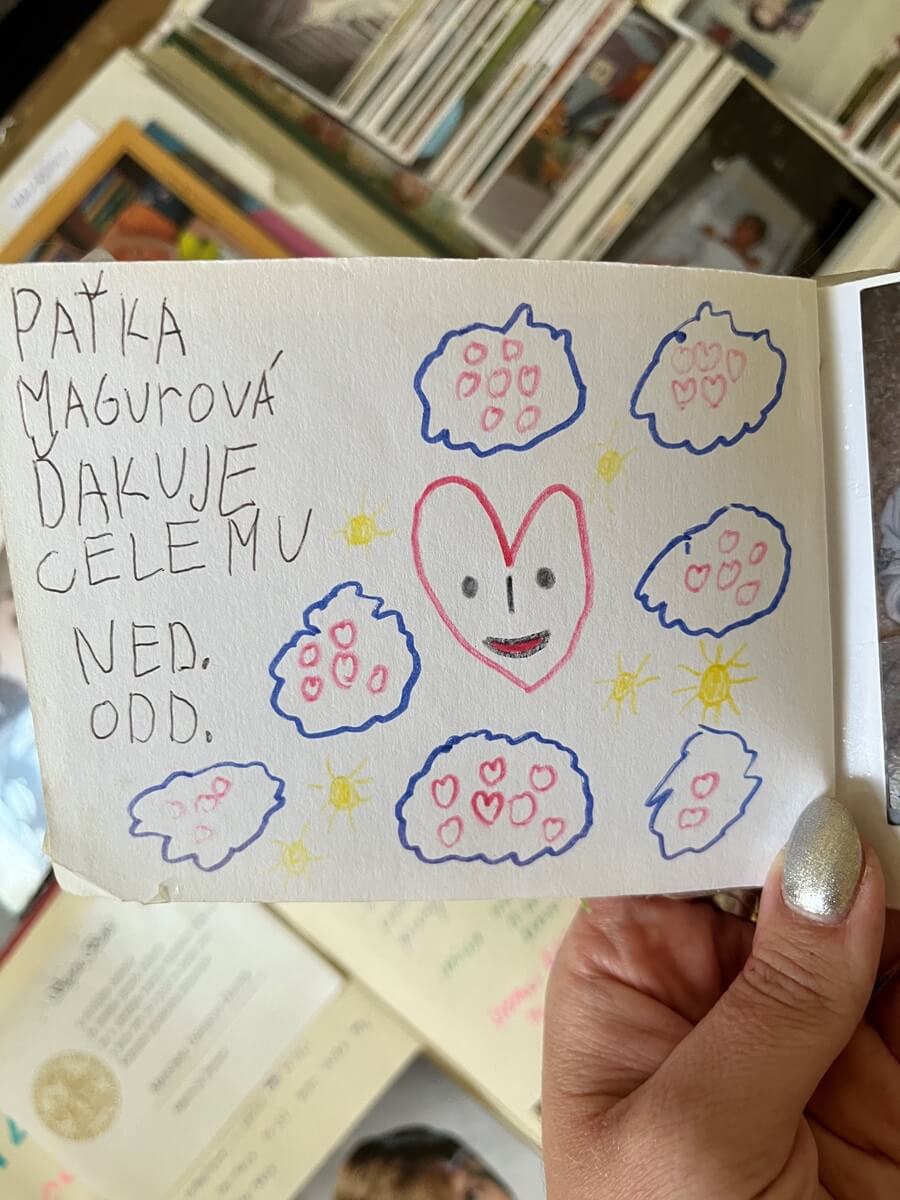 PAŤKA
MAGUROVÁ
ĎAKUJE
CELEMU
NED.
ODD.